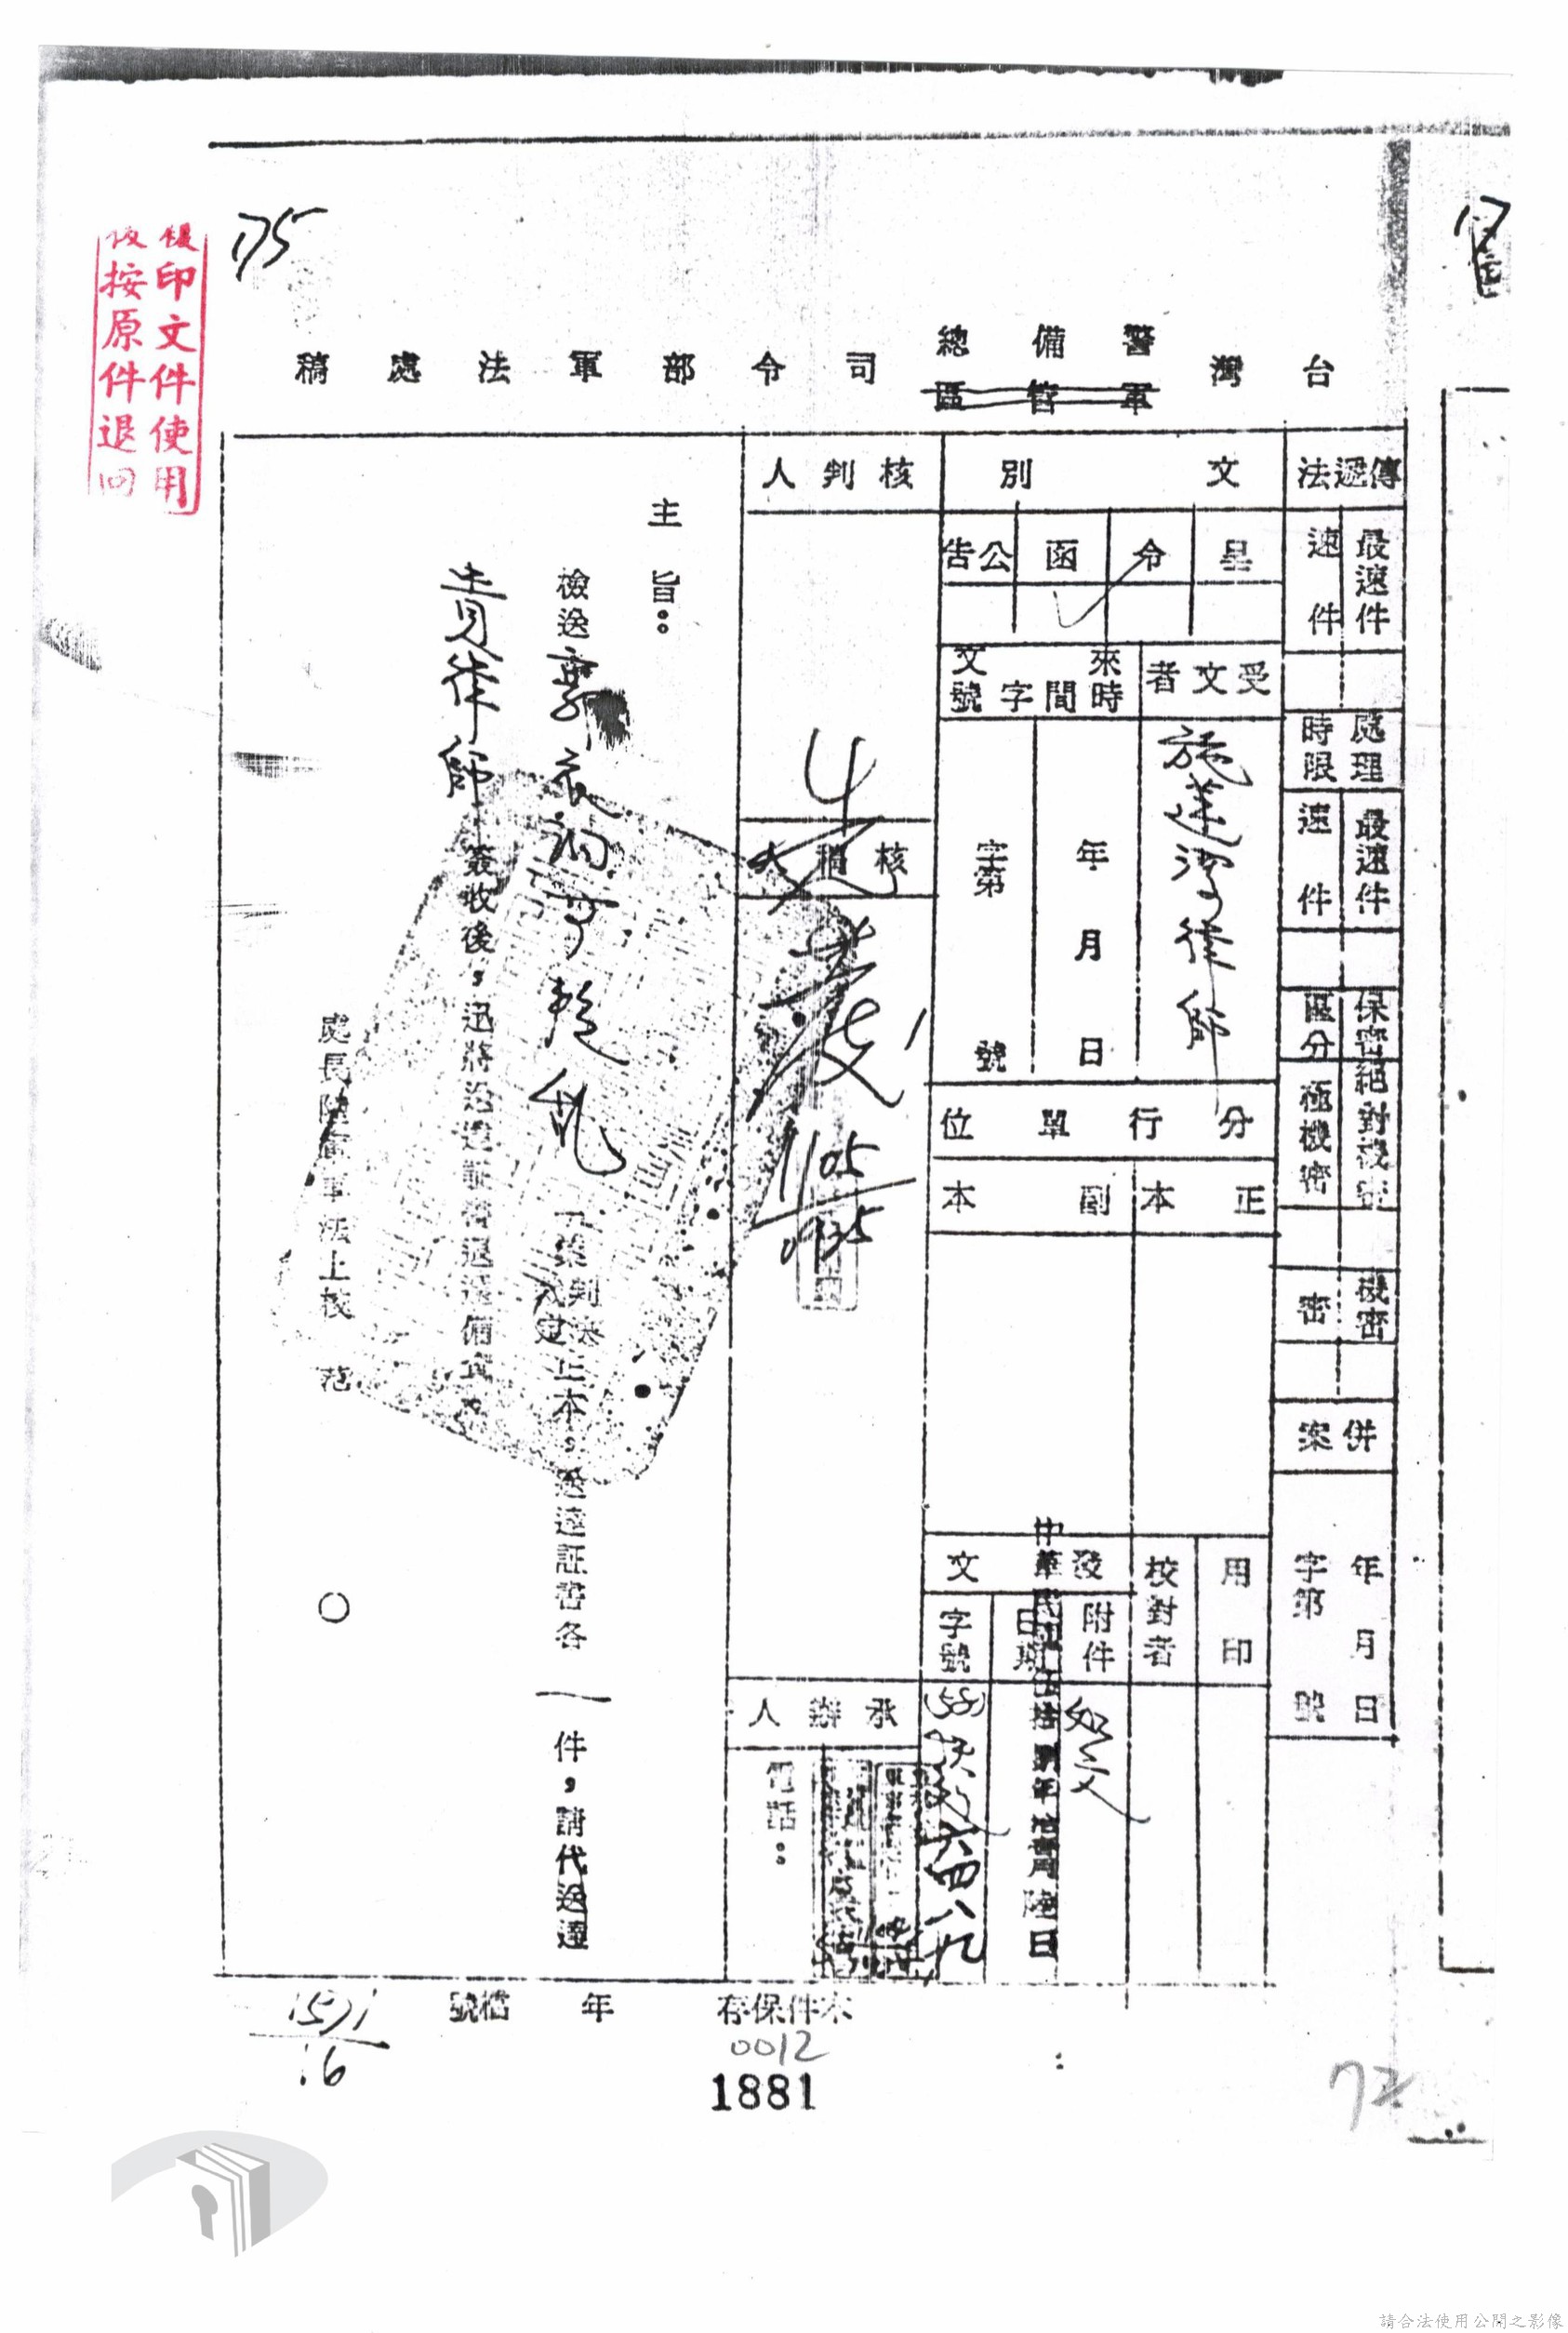 175
台灣警備總司令部軍法處稿
軍管區
傳遞法
最速件
速件
處理時限
最速件
速件
保密區分
絕對機密
極機密
機密
密
併案
年月日
字第號
文別
呈
令
函
公告
受文者
來文時間字號
施蓮 律師
年月日
字第
號
分行單位
正本
副本
用印
校對者
發文
附件
日期
字號
如文
中華民國伍拾 年 月陸日
六四八九
核判人
核稿人
1105
0935
承辦人
電話：
主旨：
檢送 叛亂一案判決
裁定
正本，送達証書各一件，請代送達
律師簽收後，迅將送達証書退還備查。
處長陸軍軍法上校 范 ○
本件保存 年 檔號
1571
16
0012
1881
72
複印文件使用
後按原件退回
請合法使用公開之影像